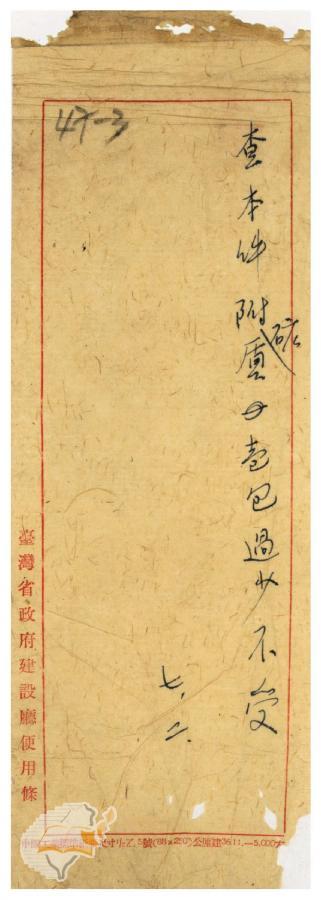 47-3
查本件附雲母壱包過少不受
礦
七、二、
臺灣省政府建設廳便用條
5,000